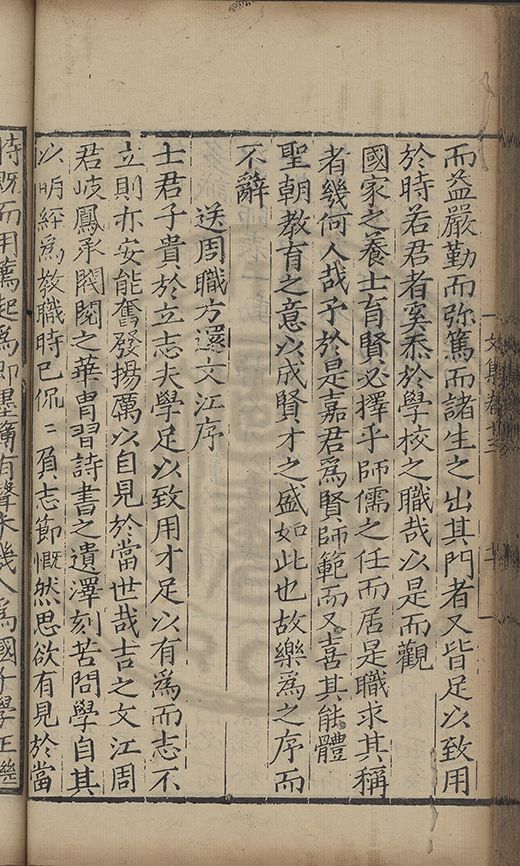 而益嚴勤而弥篤而諸生之出其門者又皆足以致用
於時若君者奚忝於學校之職哉以是而觀
國家之養士育賢必擇乎師儒之任而居是職求其稱
者幾何人哉予於是嘉君為賢師範而又喜其能體
聖朝教育之意以成賢才之盛如此也故樂為之序而
不辭
送周職方還文江序
士君子貴於立志夫學足以致用才足以有為而志不
立則亦安能奮發揚厲以自見於當世哉吉之文江周
君岐鳳承閥閱之華胄習詩書之遺澤刻苦問學自其
以明經為教職時已侃〻負志節慨然思欲有見於當
時既而用薦起為即墨簿有聲未幾入為國子學正
文集卷